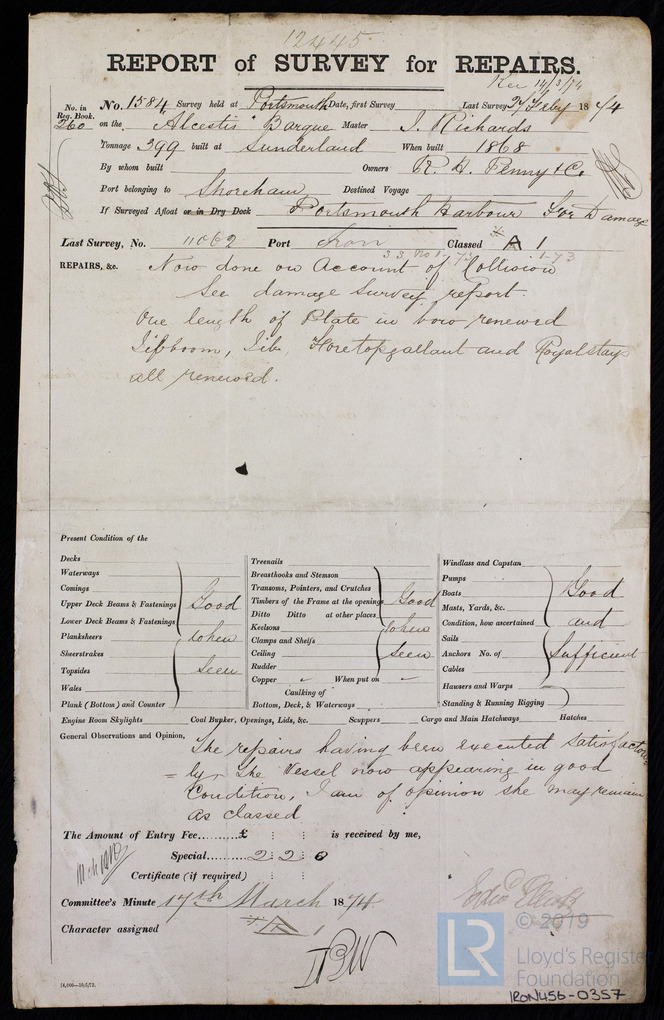 12445
REPORT of SURVEY for REPAIRS.
Rec 14/3/74
No. in Reg. Book. No. 1584 Survey held at Portsmouth Date, first Survey Last Survey 27 Feby 1874
260 on the "Alcestis" Barque Master J. Richards
Tonnage 399 built at Sunderland When built 1868
By whom built Owners R. H. Penny & Co
Port belonging to Shoreham Destined Voyage
If Surveyed Afloat or in Dry Dock Portsmouth Harbour For Damage
Last Survey, No. 11062 Port Iron Classed A 1
3 3 No 1-73 1-73
REPAIRS, &c. Now done on Account of Collision
See damage Survey report.
One length of Plate in bow renewed
Jibboom, Jib, Foretopgallant and Royal stays
all renewed.
Present Condition of the
Decks
Waterways
Comings
Upper Deck Beams & Fastenings Good
Lower Deck Beams & Fastenings
Planksheers when
Sheerstrakes
Topsides seen
Wales
Plank (Bottom) and Counter
Treenails
Breasthooks and Stemson
Transoms, Pointers, and Crutches
Timbers of the Frame at the openings Good
Ditto Ditto at other places
Keelsons when
Clamps and Shelfs
Ceiling seen
Rudder
Copper " When put on "
Caulking of
Bottom, Deck, & Waterways
Windlass and Capstan
Pumps
Boats Good
Masts, Yards, &c.
Condition, how ascertained and
Sails
Anchors No. of Sufficient
Cables
Hausers and Warps
Standing & Running Rigging
Engine Room Skylights Coal Bunker, Openings, Lids, &c. Scuppers Cargo and Main Hatchways Hatches
General Observations and Opinion,
The repairs having been executed satisfactori
=ly, The Vessel now appearing in good
Condition, I am of opinion she may remain
as classed
The Amount of Entry Fee......... £ : : is received by me,
Special...... 2 : 2 : 0
Certificate (if required) : :
Committee's Minute 17th March 1874
Character assigned A 1
14,000—10/5/73.
© 2019
LR
Lloyd's Register
Foundation
IRON456-0357